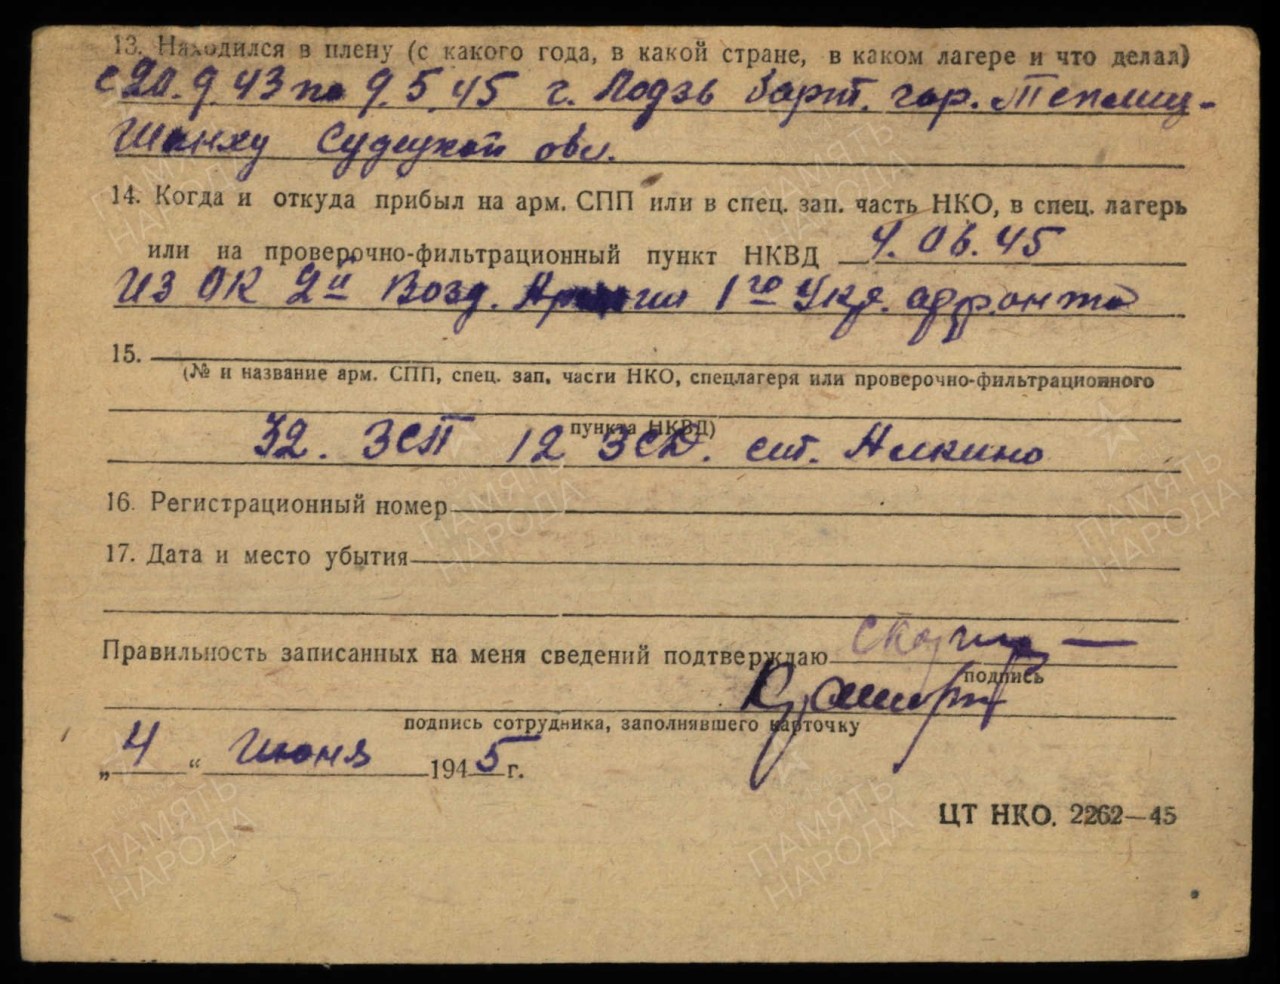 13. Находился в плену (с какого года, в какой стране, в каком лагере и что делал)
с 20.9.43 по 9.5.45 г. Лодзь гор. Теплиц-
Шанху Судецкой обл.
14. Когда и откуда прибыл на арм. СПП или в спец. зап. часть НКО, в спец. лагерь
или на проверочно-фильтрационный пункт НКВД 4.06.45
Из ОК 2й Возд. Армии 1го Укр. фронта
15.
(№ и название арм. СПП, спец. зап. части НКО, спецлагеря или проверочно-фильтрационного
пункта НКВД)
32. ЗСП 12 ЗСД. ст. Алкино
16. Регистрационный номер
17. Дата и место убытия
Правильность записанных на меня сведений подтверждаю
подпись
подпись сотрудника, заполнявшего карточку
„4“ Июня 1945 г.
ЦТ НКО. 2262—45
ПАМЯТЬ
НАРОДА